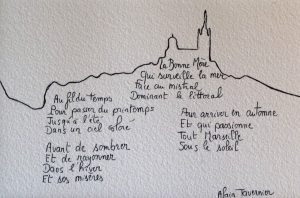 La Bonne Mère
Qui surveille la mer
Face au mistral
Dominant le littoral
Au fil du temps
Pour passer du printemps
Jusqu'à l'été
Dans un ciel coloré
Pour arriver en automne
Et qui passionne
Tout Marseille
Sous le soleil
Avant de sombrer
Et de rayonner
Dans l'hiver
Et ses misères
Alain Tavernier